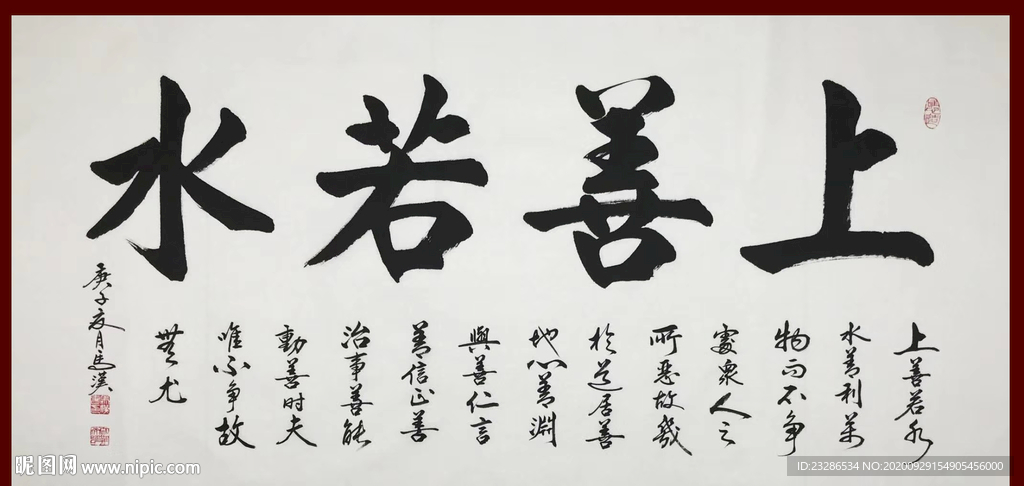 上善若水
上善若水
水善利萬
物而不争
處衆人之
所惡故幾
於道居善
地心善淵
與善仁言
善信正善
治事善能
動善时夫
唯不争故
無尤
庚子夏月马汉
昵图网 www.nipic.com
ID:23286534 NO:20200929154905456000